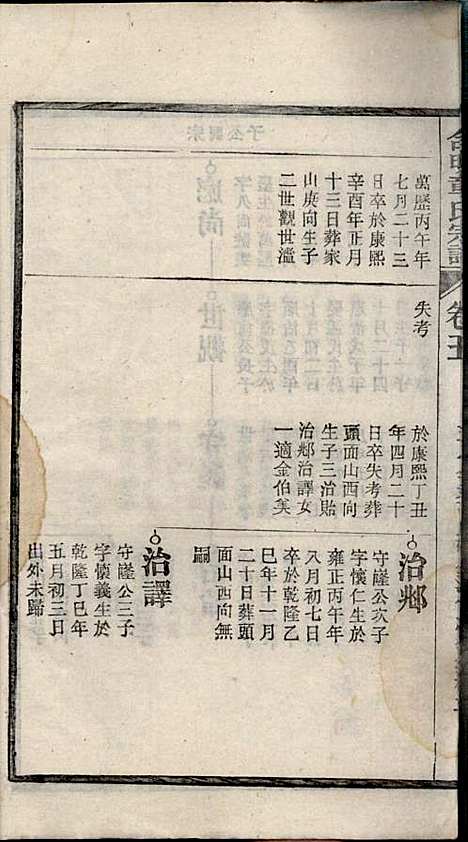 萬歷丙午年
七月二十三
日卒於康熙
辛酉年正月
十三日葬家
山庚向生子
二世觀世瀊
失考
於康熙丁丑
年四月二十
日卒失考葬
頭面山西向
生子三治貽
治郯治譯女
一適金伯奐
治郯
守謹公次子
字懷仁生於
雍正丙午年
八月初七日
卒於乾隆乙
巳年十一月
二十日葬頭
面山西向無
嗣
治譯
守謹公三子
字懷義生於
乾隆丁巳年
五月初三日
出外未歸
卷五